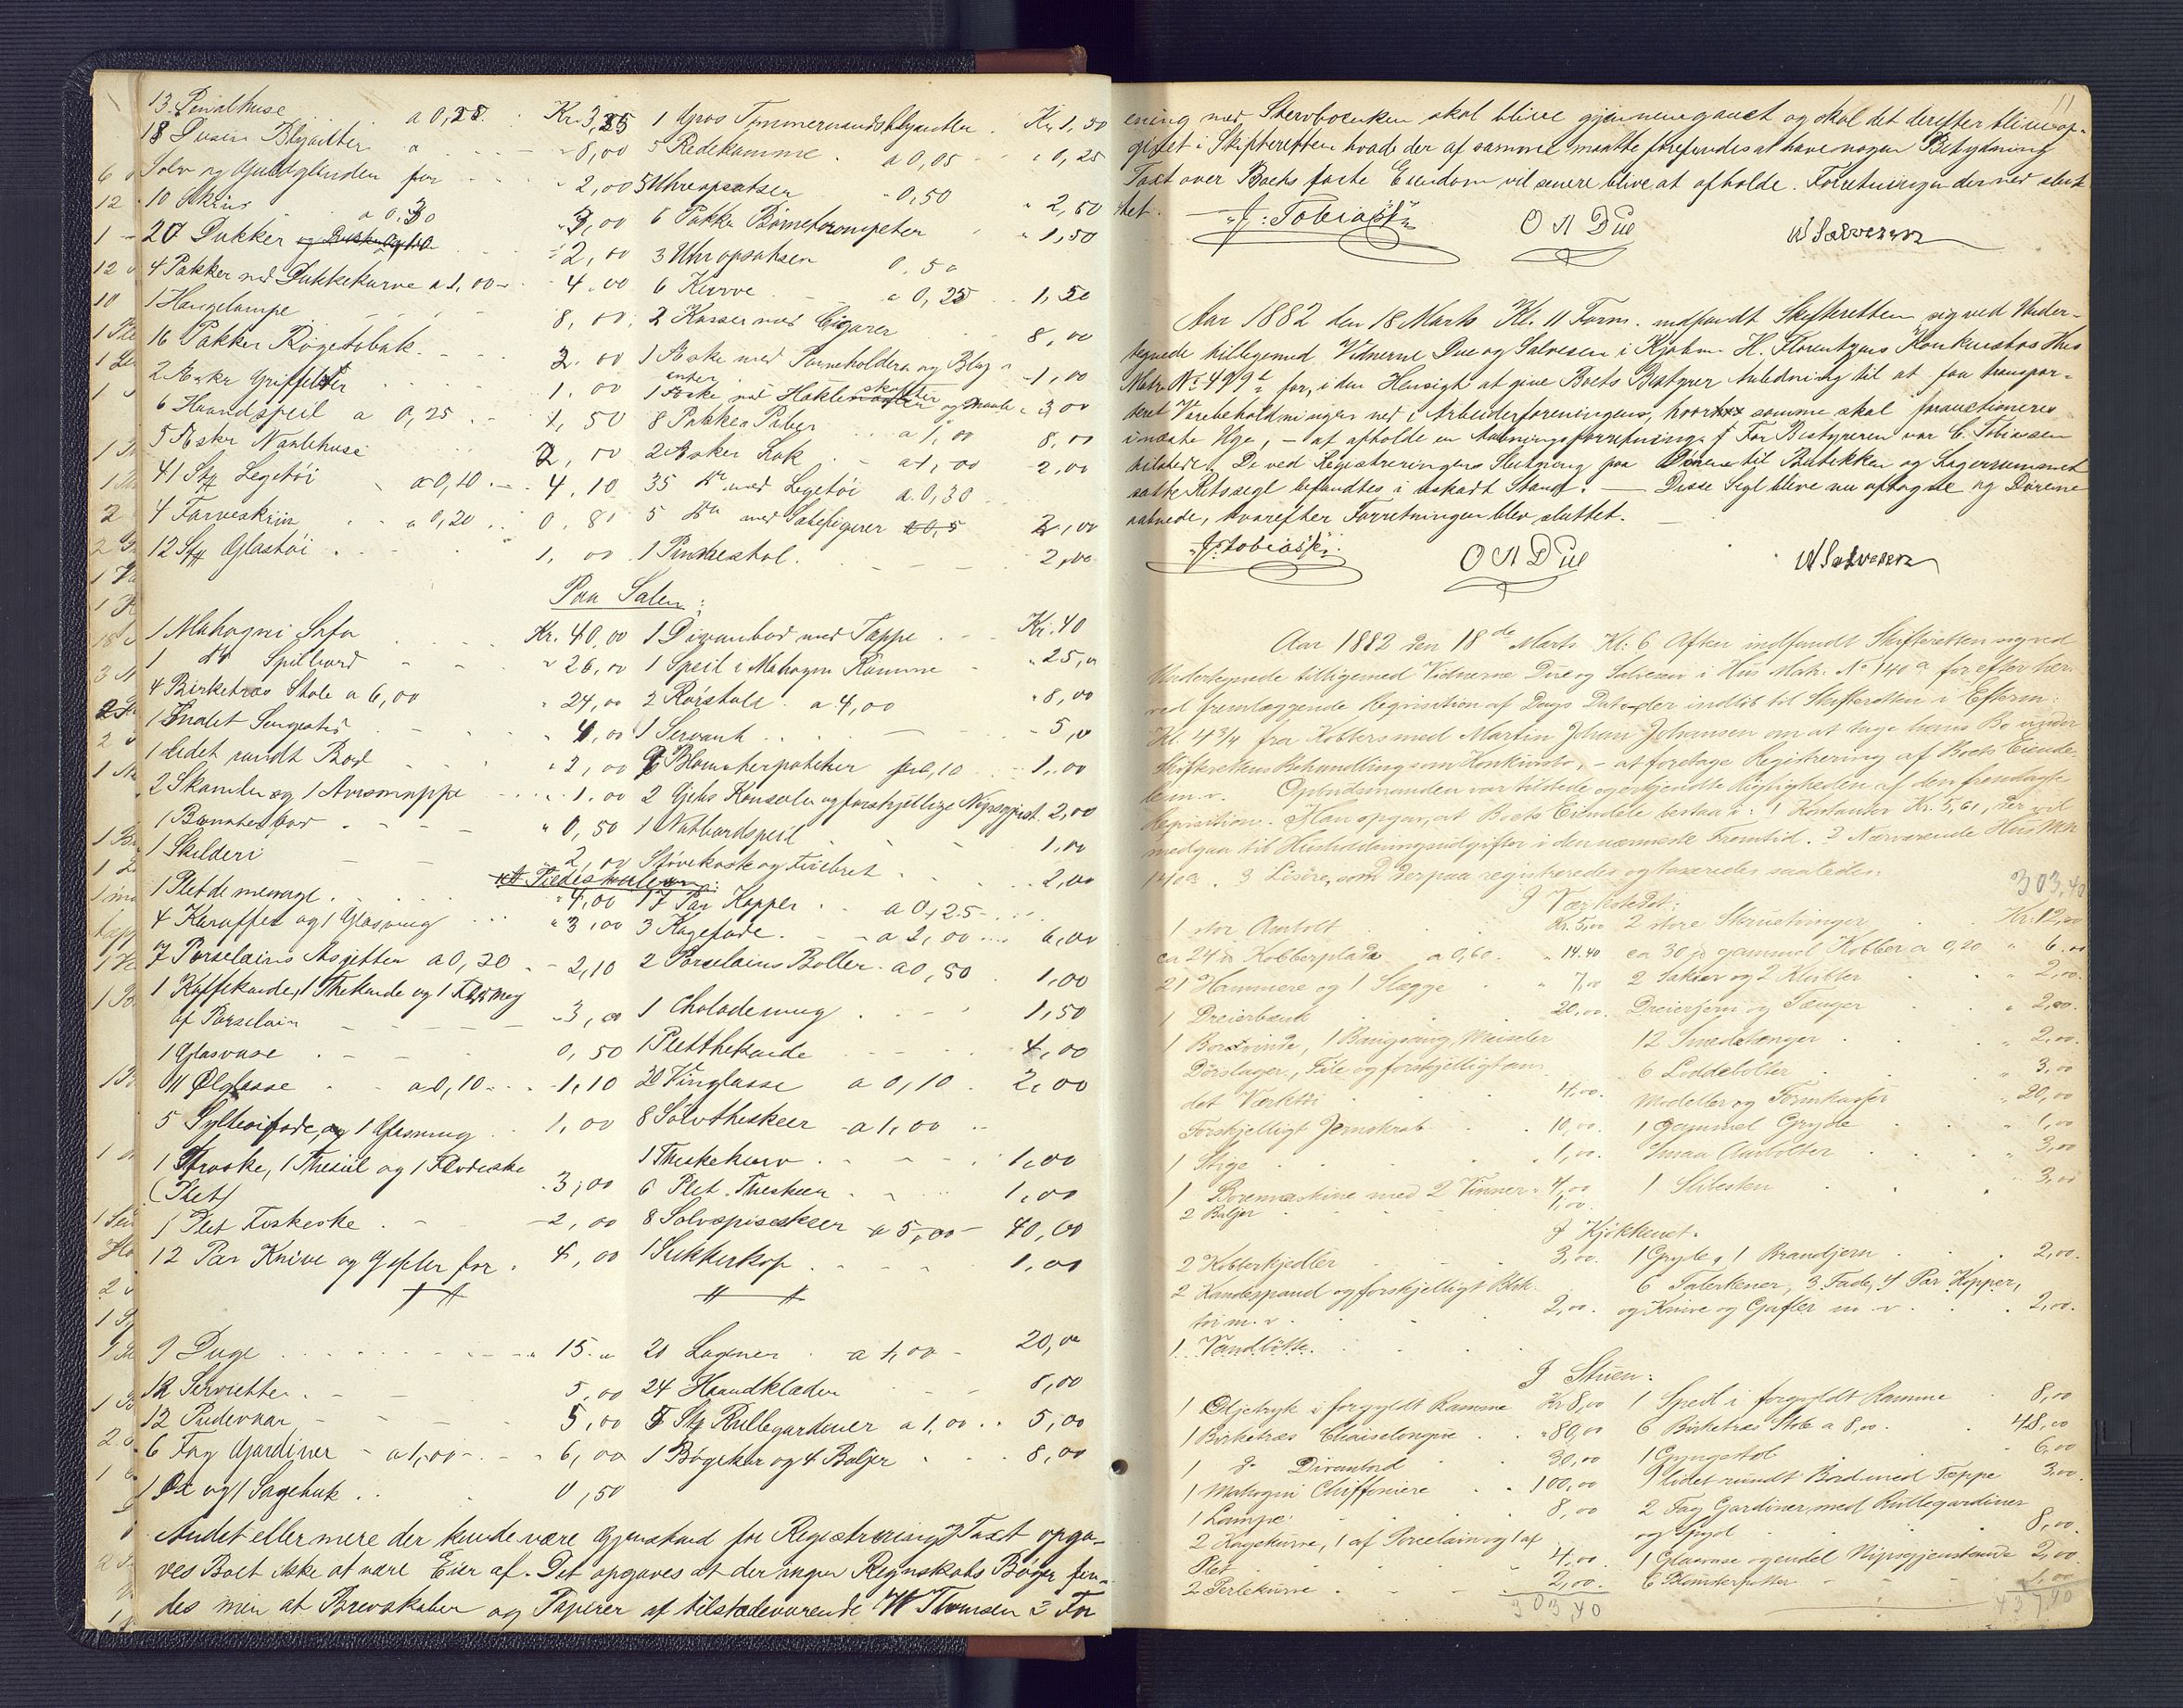 13. Penalhuse a 0,25. Kr. 3,25
18 Dusin Blyanter a 8,00
Sølv og Guldglinden for 2,00
10 Skrin a 0,30 3,00
20 Dukker 2,00
4 Pakker med Dukkekurve a 1,00 4,00
1 Hængelampe 8,00
16 Pakker Røgetobak 2.00
2 Æsker Griffel 1.00
6 Haandspeil a 0,25 1,50
5 Æsker Naalehuse 2,00
41 Stk Legetøi a 0,10 4.10
4 Farveskrin a 0,20 0.80
12 Stk Glastøi 1,00
1 Gros Tømmermandsblyanter Kr 1,50
5 Redekamme a 0,05 0,25
5 Uhropsatser 0,50 2,50
6 Pakker Børnetrompeter 1,50
3 Uhropsatser 0.50
6 Kurve a 0,25 1,50
2 Kasser med Cigarer 8,00
1 Æske med Penneholdere og Blyanter 1,00
1 Æske med Hækleskafter og Naale 3,00
8 Pakker Piber a 1,00 8,00
2 Æsker Lak a 1,00 2,00
35 do med Legetøi a 0,30
5 do med 2,00
1 2,00
Paa Salen:
1 Mahogni Sofa Kr. 40,00
1 do Spilbord 26,00
4 Birketræs Stole a 6,00 24,00
1 malet Sengested 4,00
1 lidet rundt Bord 2,00
2 Skamler og 1 Avismappe 1.00
0,50
1 Skilderi 2,00
1 Pletde menage 4,00
4 Karaffer og 1 Glasmug 3,00
7 Porselains Asjetter a 0,30 2,10
1 Kaffekande, 1 Thekande og 1 Flødemug
af Porselain 3,00
1 Glasvase 0,50
11 Ølglasse a 0,10 1,10
5 Syltetøifade, og 1 Glasmug 1,00
1 Strøske, 1 Thesiil og 1 Flødeske
(Plet) 3,00
1 Plet Fiskeske 2,00
12 Par Knive og Gafler for 4,00
1 Divanbord med Tæppe Kr. 40
1 Speil i Mahogni Ramme 25,00
2 Rørstole a 4,00 8,00
1 Servant 5,00
Blomsterpotter a 0,10 1.00
2 Gibs Konsoler og forskjellige Nipsgjenst. 2,00
1 Natbordspeil 1,00
Støvekost og Firebret 2,00
17 Par Kopper a 0,25
3 Kagefade a 2,00 6,00
2 Porselains Boller a 0,50 1,00
1 Choladem​ug 1,50
1 Pletthekande 4,00
20 Vinglasse a 0,10 2,00
8 Sølvtheskeer a 1,00
1 Theskekurv 1,00
6 Plet Theskeer 1,00
8 Sølvspiseskeer a 5,00 40,00
1 Sukkerkop 1,00
9 Duge 15.00
12 Servietter 5,00
12 Pudevaar 5,00
6 Fag Gardiner a 1,00 6,00
1 Øx og 1 Sagehuk 0,50
20 Lagener a 1,00 20,00
24 Haandklæder 8,00
5 Stk Rullegardiner a 1,00 5,00
1 Bøgekar og 4 Baljer 8,00
Andet eller mere der kunde være Gjenstand for Registrering & Taxt opga-
ves Boet ikke at være Eier af. Det opgaves at der ingen Regnskabs Bøger fin-
des men at Brevskaber og Papirer af tilstedeværende W Thomsen i For
11
ening med Stervboenken skal blive gjennemgaaet og skal det derefter blive op-
givet i Skifteretten hvad der af samme maatte forefindes at have nogen Betydning
Taxt over Boets faste Eiendom vil senere blive at afholde. Forretningen dermed slut-
tet.
J. Tobias O A Due W Salvesen
Aar 1882 den 18 Marts Kl. 11 Form. indfandt Skifteretten sig ved Under-
tegnede tilligemed Vidnerne Due og Salvesen i Kjøbm. H. Florentzens Konkursbos Hus
Matr. No 499 for, i den Hensigt at give Boets Bestyrer Anledning til at faa transpor-
teret Varebeholdningen ned i Arbeiderforeningen, hvor samme skal forauctioneres
i næste Uge, – at afholde en Aabningsforretning. For Bestyreren var C. Tobiassen
tilstede. De ved Registreringens Slutning paa Dørene til Butikken og Lagerrummet
satte Retssegl befandtes i uskadt Stand. — Disse Segl bleve nu aftagne og Dørene
aabnede, hvorefter Forretningen blev sluttet.
J. Tobias O A Due W Salvesen
Aar 1882 den 18de Marts Kl. 6 Aften indfandt Skifteretten sig ved
Undertegnede tilligemed Vidnerne Due og Salvesen i Hus Matr. No 140 a for efter her-
ved fremlæggende Requisition af Dags Dato der indløb til Skifteretten i Efterm.
Kl. 4 3/4 fra Kobbersmed Martin Johan Johansen om at tage hans Bo under
Skifterettens Behandling som Konkursbo, – at foretage Registrering af Boets Eiende-
le m. v. Opbudsmanden var tilstede og erkjendte Rigtigheden af den fremlagte
Requisition. Han opgav, at Boets Eiendele bestaa i: 1 Kontanter Kr. 5,61, der vil
medgaa til Husholdningsudgifter i den nærmeste Fremtid. 2 Nærværende Hus Matr
140 a. 3 Løsøre, som derpaa registreredes og taxeredes saaledes:
303,40
I Værkstedet:
1 stor Ambolt Kr. 5,00
ca 24 lb Kobberplader a 0,60 14.40
21 Hammere og 1 Slægge 7,00
1 Dreierbænk 20,00
1 Borevinde, 1 Baugsaug, Meisler
Dørslager, File og forskjelligt an-
det Værktøi 4,00
Forskjelligt Jernskrab 10,00
1 Stige 1,00
1 Boremaskine med 2 Vinner 4,00
2 Baljer 1,00
2 store Skruetvinger Kr. 12,00
ca 30 lb gammel Kobber a 0,20 6.00
2 Sakser og 2 Klutter 2,00
Dreierjern og Tænger 2,00
12 Smedetænger 2,00
6 Loddebolter 3,00
Modeller og Formkasser 20,00
1 gammel Gryde 1,00
Smaa Ambolter 3,00
1 Slibesten 3,00
I Kjøkkenet.
2 Kobberkjedler 3,00
2 Vandspand og forskjelligt Blik-
tøi m. v. 2,00
1 Vandbøtte
1 Gryde, 1 Brandjern 2,00
6 Talerkener, 3 Fade, 4 Par Kopper,
og Knive og Gafler m v 2,00
I Stuen:
1 Oljetryk i forgyldt Ramme Kr 8,00
1 Birketræs Chaiselongue 80,00
1 do Divanbord 30,00
1 Mahogni Chiffoniere 100,00
1 Lampe 8,00
2 Kagekurve, 1 af Porcelain og 1 af
Plet 4,00
2 Perlekurve 2,00
303,40
1 Speil i forgyldt Ramme 8,00
6 Birketræs Stole a 8,00 48,00
1 Gyngestol 6,00
1 lidet rundt Bord med Tæppe 3,00
2 Fag Gardiner med Rullegardiner
og Spyd 8,00
1 Glasvase og endel Nipsgjenstande 2,00
6 Blomsterpotter 1,00
437,40